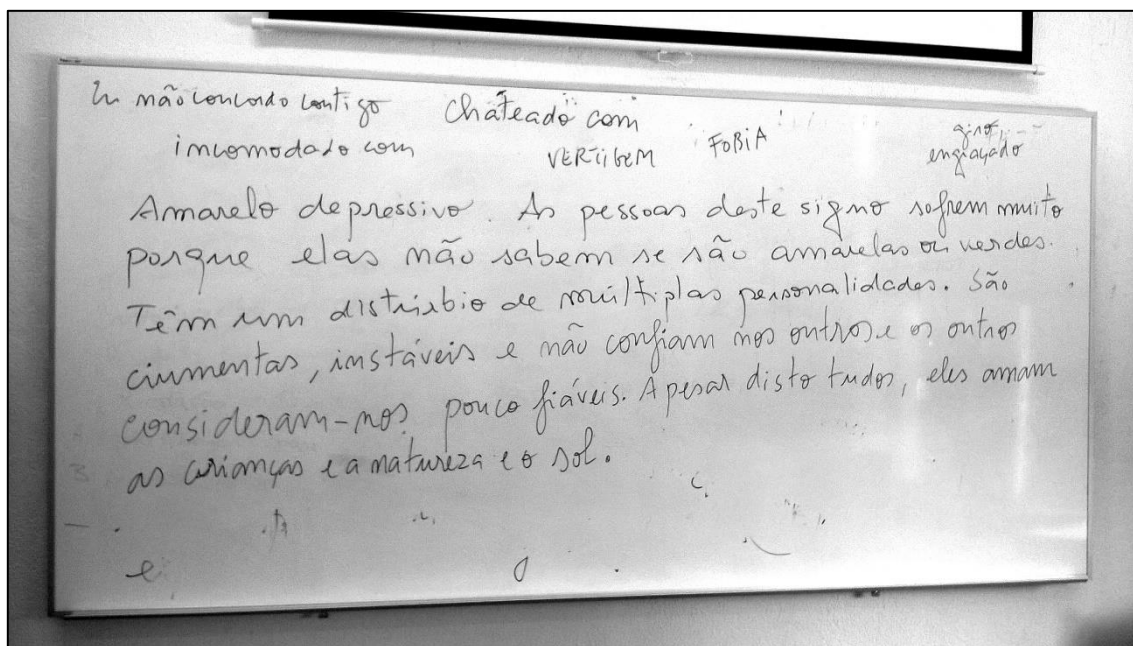 não concordo contigo
chateado com
incomodado com
VERTIGEM
FOBIA
giro,
engraçado
Amarelo depressivo. As pessoas deste signo sofrem muito
porque elas não sabem se são amarelas ou verdes.
Têm um distúrbio de múltiplas personalidades. São
ciumentas, instáveis e não confiam nos outros e os outros
consideram-nos pouco fiáveis. Apesar disto tudos, eles amam
as crianças e a natureza e o sol.